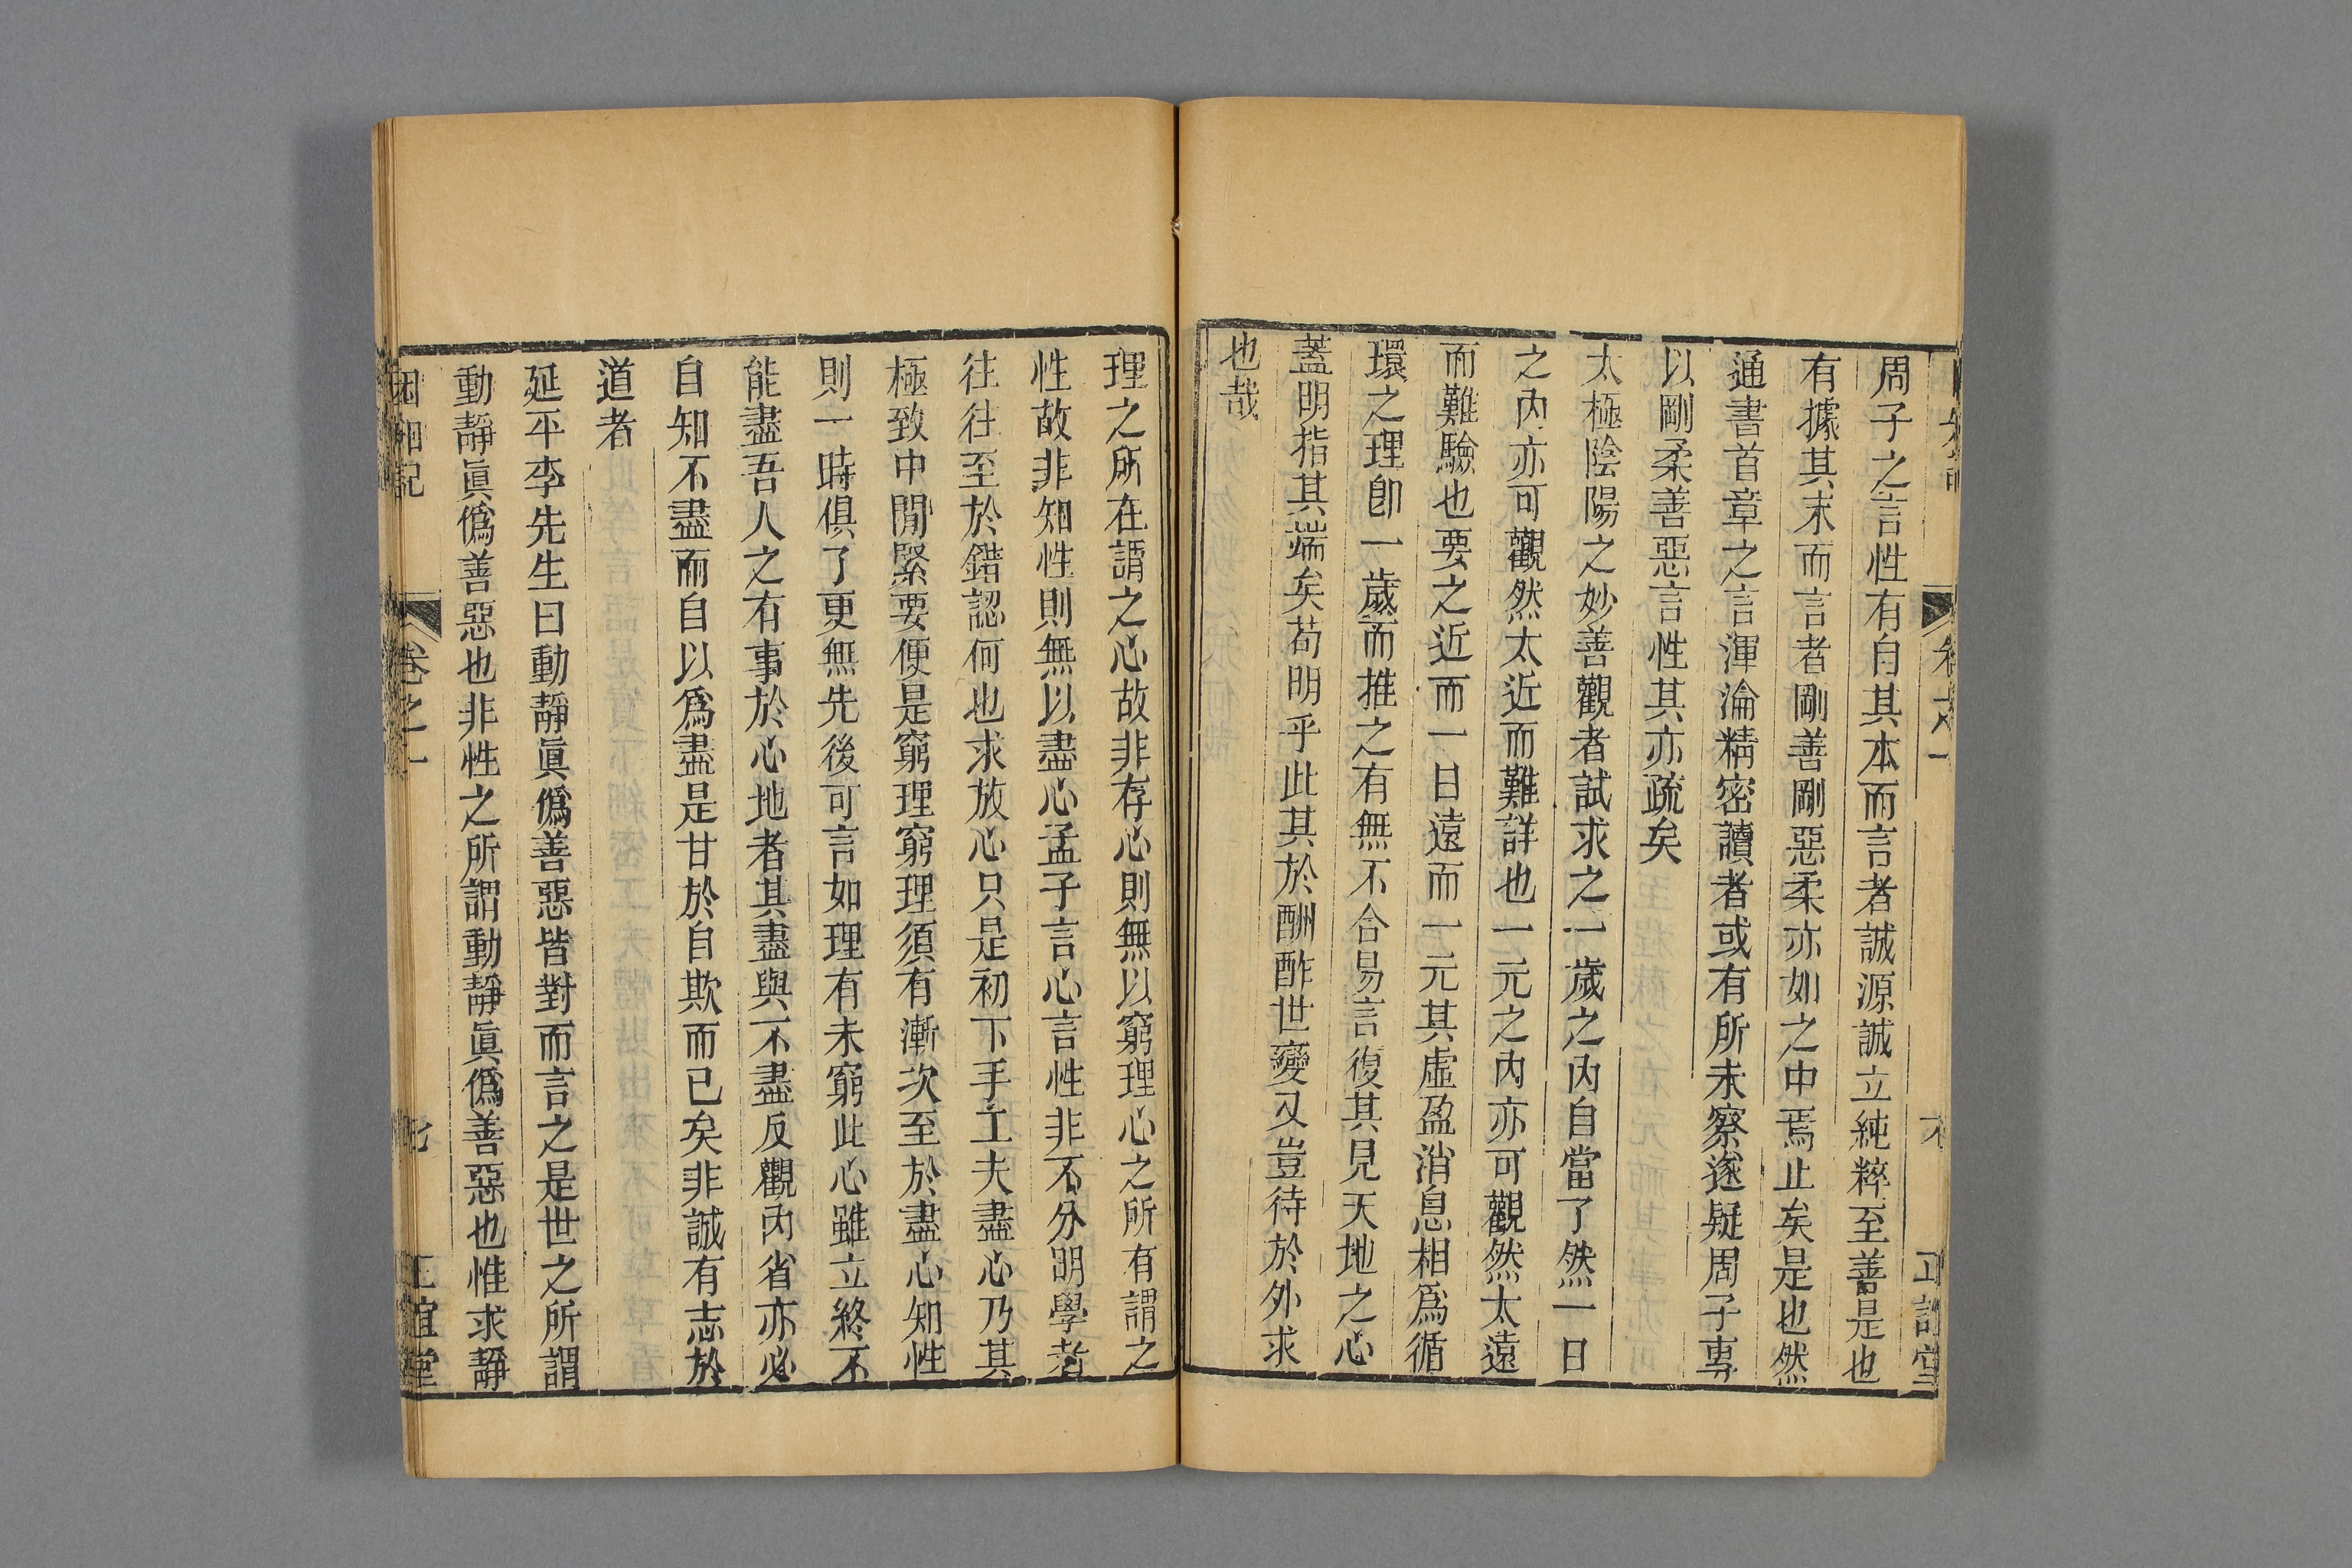 周子之言性有自其本而言者誠源誠立純粹至善是也
有據其末而言者剛善剛惡柔亦如之中焉止矣是也然
通書首章之言渾淪精密讀者或有所未察遂疑周子專
以剛柔善惡言性其亦疏矣
太極陰陽之妙善觀者試求之一歲之內自當了然一日
之內亦可觀然太近而難詳也一元之內亦可觀然太遠
而難驗也要之近而一日遠而一元其虛盈消息相爲循
環之理卽一歲而推之有無不合易言復其見天地之心
蓋明指其端矣苟明乎此其於酬酢世變又豈待於外求
也哉
理之所在謂之心故非存心則無以窮理心之所有謂之
性故非知性則無以盡心孟子言心言性非不分明學者
往往至於錯認何也求放心只是初下手工夫盡心乃其
極致中閒緊要便是窮理窮理須有漸次至於盡心知性
則一時俱了更無先後可言如理有未窮此心雖立終不
能盡吾人之有事於心地者其盡與不盡反觀內省亦必
自知不盡而自以爲盡是甘於自欺而已矣非誠有志於
道者
延平李先生曰動靜眞僞善惡皆對而言之是世之所謂
動靜眞僞善惡也非性之所謂動靜眞僞善惡也惟求靜
困知記
卷之一
七
正誼堂